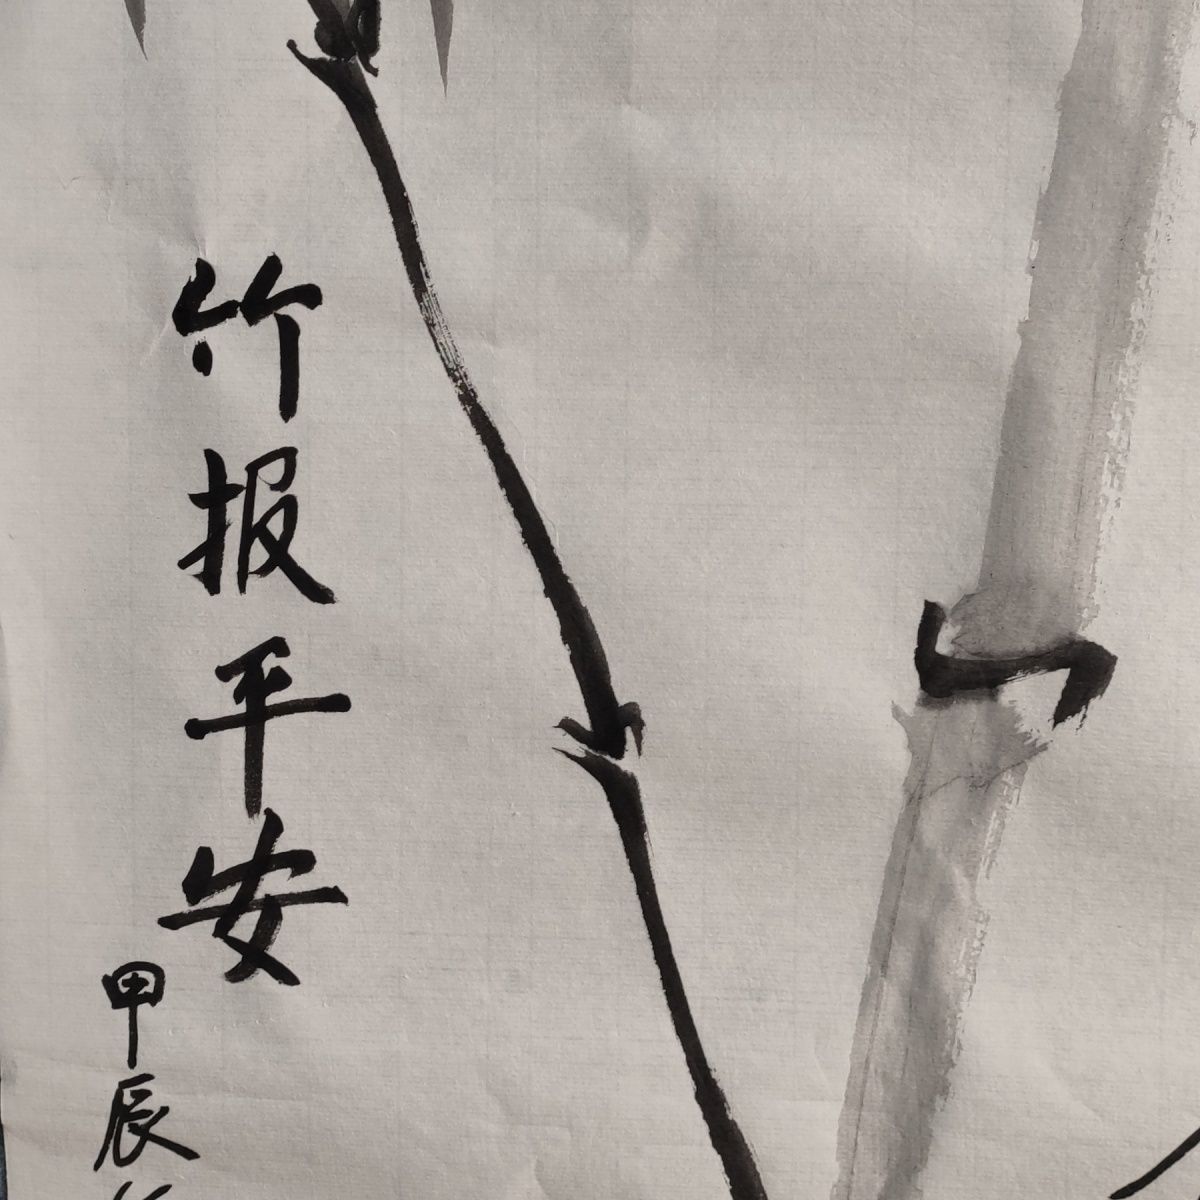 竹报平安
甲辰